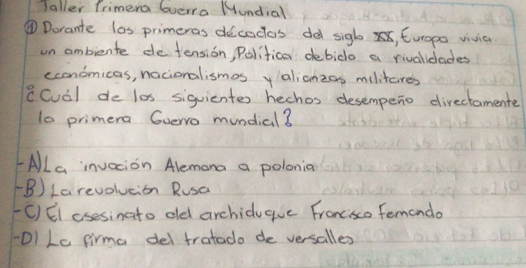 Taller Primera Guerra Mundial
① Dorante los primeras décadas del siglo XX, Europa vivia
un ambiente de tensión, Política debido a rivalidades
económicas, nacionalismos y alianzas militares
¿Cuál de los siguientes hechos desempeño directamente
la primera Guerra mundial?
-A) La invación Alemana a polonia
-B) La revolución Rusa
-C) El asesinato del archiduque Francisco Fernando
-D) La firma del tratado de versalles